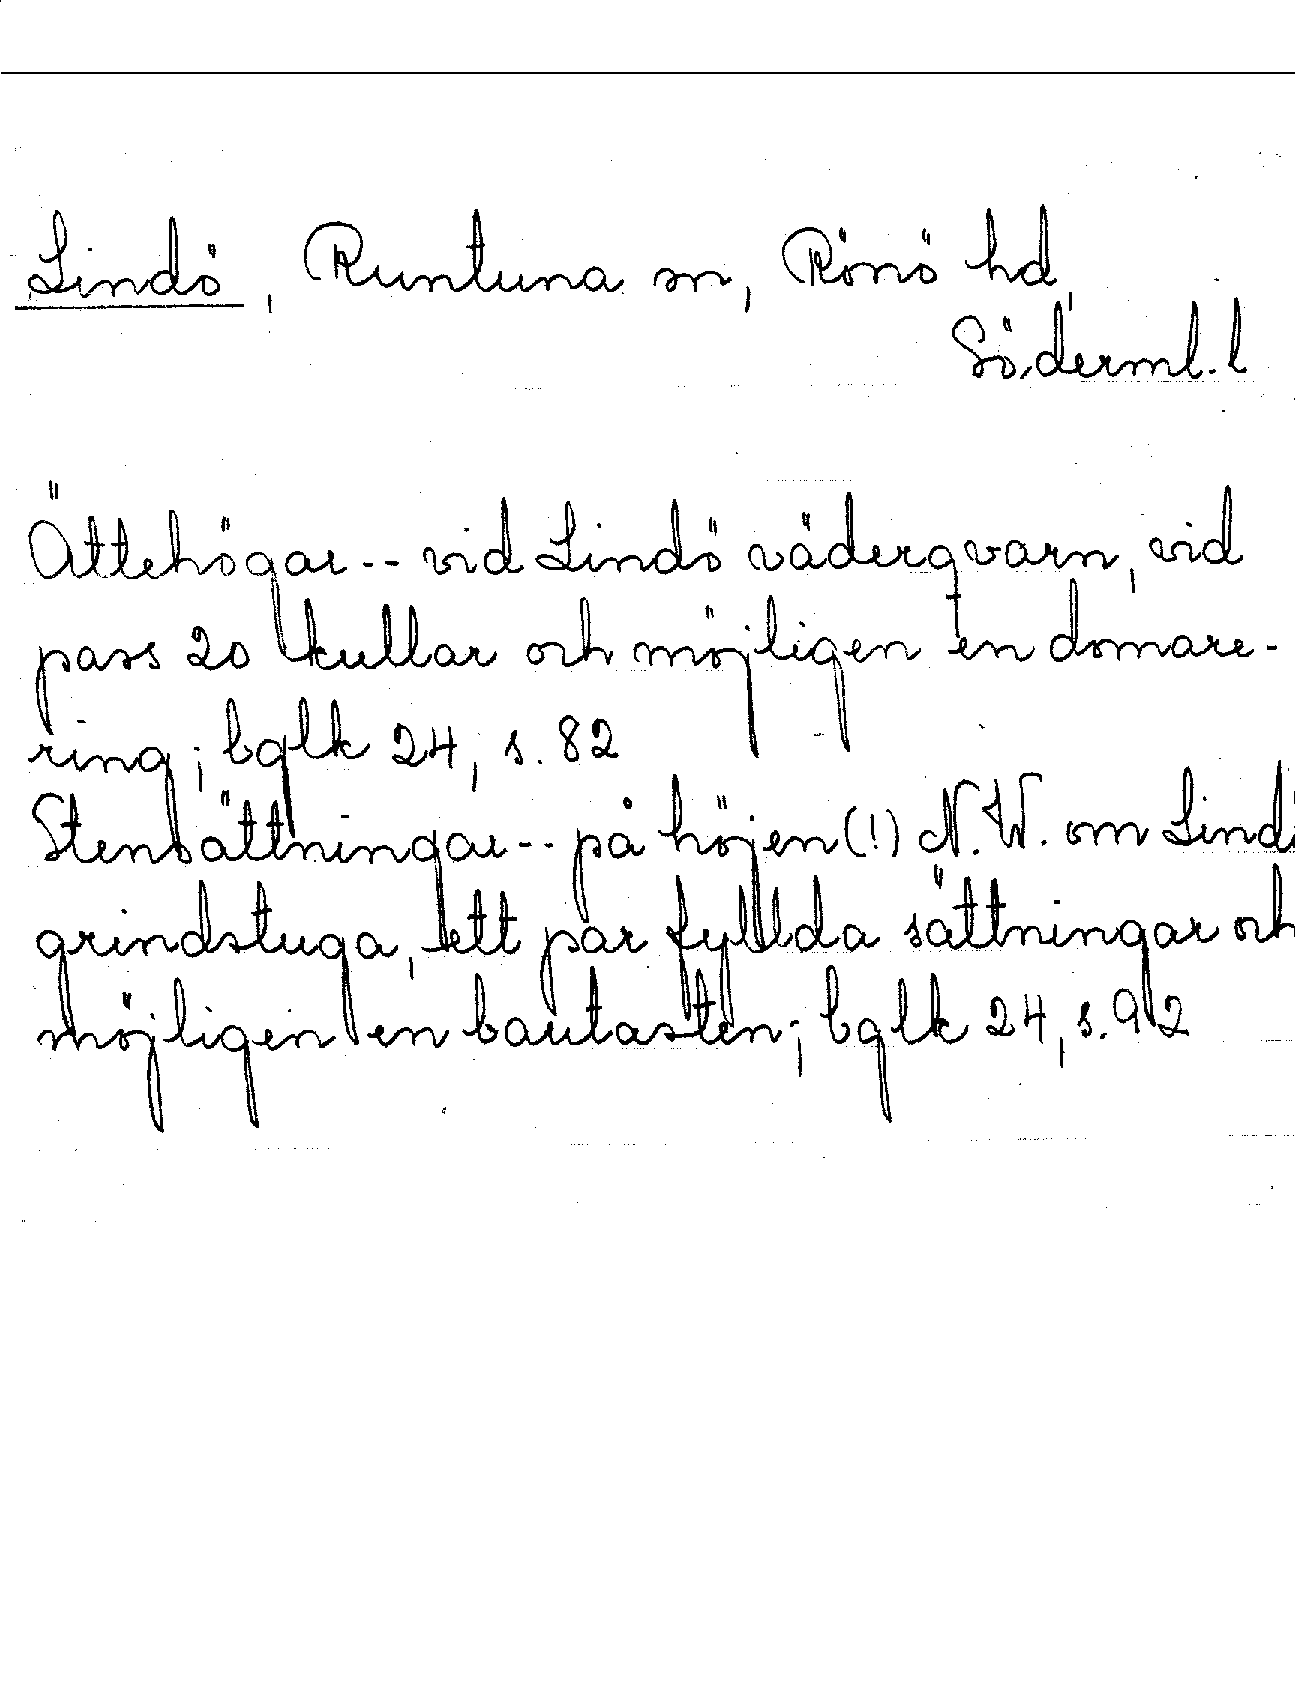 Lindö, Runtuna sn, Rönö hd,
Söderml. l
Ättehögar-- vid Lindö väderqvarn, vid
pass 20 kullar och möjligen en domare-
ring; bglk 24, s. 82
Stensättningar-- på höjen(!) N.W. om Lindö
grindstuga, ett par fyllda sättningar och
möjligen en bautasten; bglk 24, s. 92